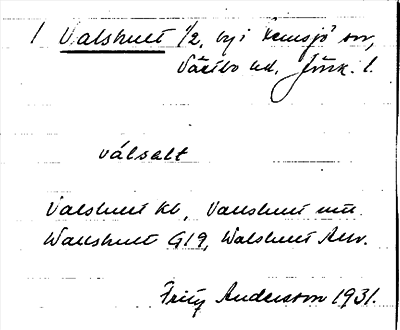 1 Valshult 1/2, by i Kensjö sn,
Västbo hd, Jönk. l.
válsalt
Valshult kb, Vallshult mtl
Wallshult G19, Walshult Anv.
Fritz Andersson 1931.